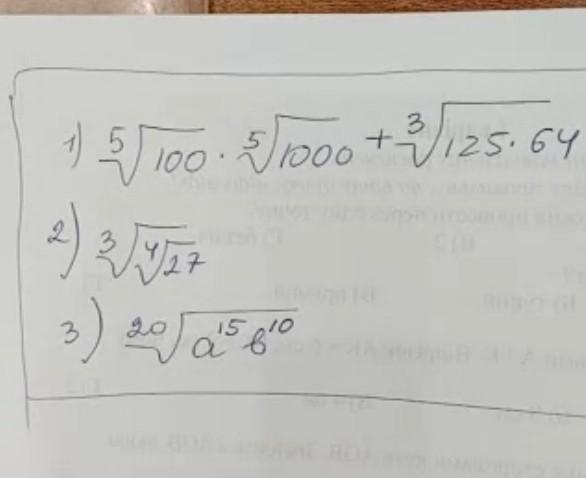 1) ⁵√100 · ⁵√1000 + ³√125·64
2) ³√⁴√27
3) ²⁰√a¹⁵b¹⁰